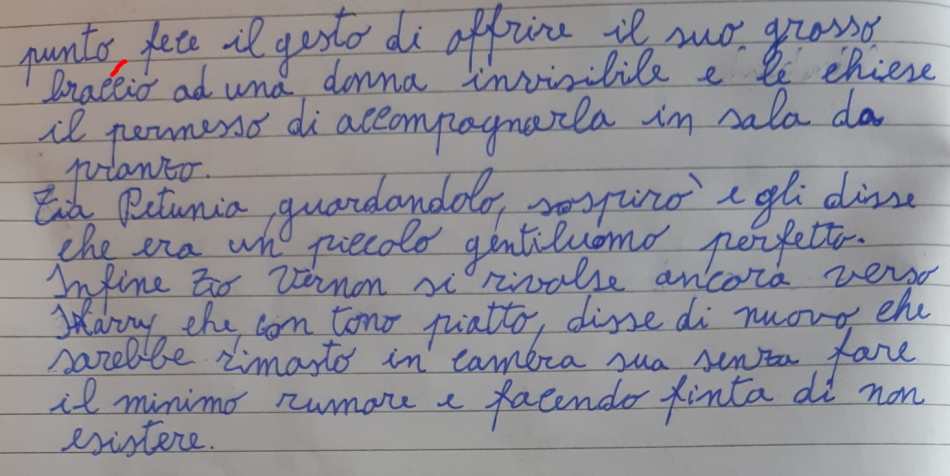 punto, fece il gesto di offrire il suo grosso
braccio ad una donna invisibile e le chiese
il permesso di accompagnarla in sala da
pranzo.
Zia Petunia, guardandolo, sospirò e gli disse
che era un piccolo gentiluomo perfetto.
Infine zio Vernon si rivolse ancora verso
Harry che, con tono piatto, disse di nuovo che
sarebbe rimasto in camera sua senza fare
il minimo rumore e facendo finta di non
esistere.